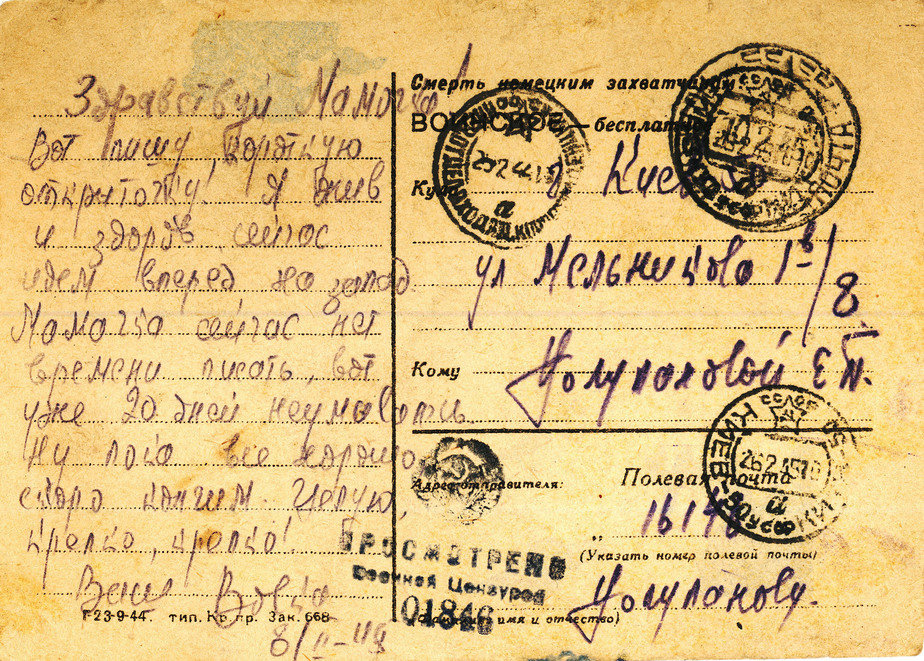 Здравствуй Мамочка!
Вот пишу, короткую
открыточку! Я жив
и здоров сейчас
идем вперед на запад.
Мамочка сейчас нет
времени писать, вот
уже 20 дней неумаваюсь
Ну пока все хорошо,
скоро кончим. Целую,
крепко, крепко!
Ваш Вовка
8/II-45
Г-23-9-44. тип. Кр. пр. Зак. 668
Смерть немецким захватчикам!
ВОИНСКОЕ — бесплатно
Куда
ул Мельникова 1в/8
Кому
Е П.
Адрес отправителя:
Полевая почта
(Указать номер полевой почты)
имя и отчество)
ПРОСМОТРЕНО
Военной Цензурой
01846
КИЕВ